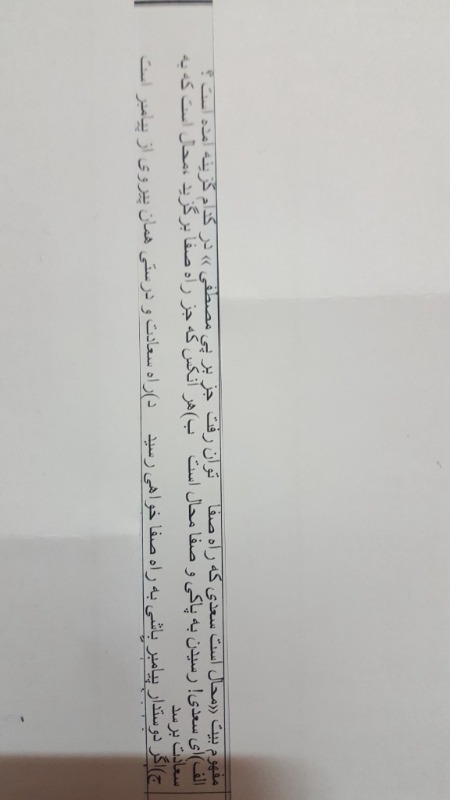 مفهوم بیت «محال است سعدی که راه صفا    توان رفت جز بر پی مصطفی» در کدام گزینه امده است ؟
الف)ای سعدی! رسیدن به پاکی و صفا محال است    ب)هر انکس که جز راه صفا برگزید ،محال است که به
سعادت برسد
ج)اگر دوستدار پیامبر باشی به راه صفا خواهی رسید    د)راه سعادت و درستی همان پیروی از پیامبر است